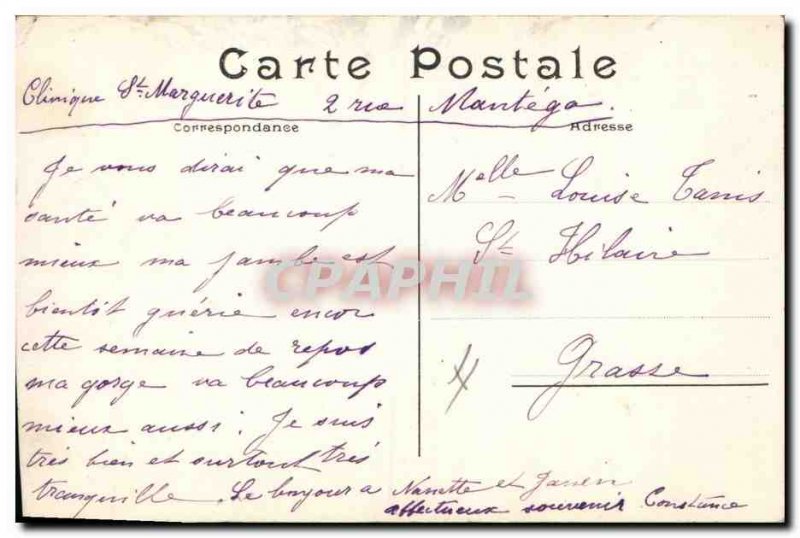 Carte Postale
Clinique St. Marguerite 2 rue Mantéga.
Correspondance
Adresse
Je vous dirai que ma
santé va beaucoup
mieux ma jambe est
bientôt guérie encor
cette semaine de repos
ma gorge va beaucoup
mieux aussi : Je suis
très bien et surtout très
tranquille. Le bonjour a Nanette et
affectueux souvenir Constance
Melle Louise Tanis
St Hilaire
Grasse
CPAPHIL